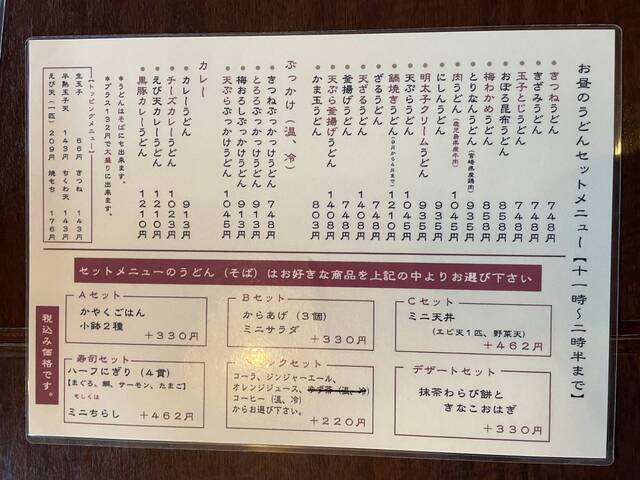 お昼のうどんセットメニュー【十一時〜二時半まで】
●きつねうどん 748円
●きざみうどん 748円
●玉子とじうどん 748円
●おぼろ昆布うどん 858円
●梅わかめうどん 858円
●とりなんうどん(宮崎県産鶏肉) 935円
●肉うどん(鹿児島県産牛肉) 1045円
●にしんうどん 935円
●明太子クリームうどん 935円
●天ぷらうどん 1045円
●鍋焼きうどん(9月から4月まで) 1210円
●ざるうどん 748円
●天ざるうどん 1408円
●釜揚げうどん 748円
●天ぷら釜揚げうどん 1408円
●かま玉うどん 803円
ぶっかけ(温、冷)
●きつねぶっかけうどん 748円
●とろろぶっかけうどん 913円
●梅おろしぶっかけうどん 913円
●天ぷらぶっかけうどん 1045円
カレー
●カレーうどん 913円
●チーズカレーうどん 1023円
●えび天カレーうどん 1210円
●黒豚カレーうどん 1210円
*うどんはそばにも出来ます。
*プラス132円で大盛りに出来ます。
【トッピングメニュー】
生玉子 66円 きつね 143円
半熟玉子天 143円 ちくわ天 143円
えび天(一匹) 209円 焼もち 176円
セットメニューのうどん(そば)はお好きな商品を上記の中よりお選び下さい
Aセット
かやくごはん
小鉢2種
+330円
Bセット
からあげ(3個)
ミニサラダ
+330円
Cセット
ミニ天丼
(エビ天1匹、野菜天)
+462円
寿司セット
ハーフにぎり(4貫)
【まぐろ、鯛、サーモン、たまご】
もしくは
ミニちらし +462円
ックセット
コーラ、ジンジャーエール、
オレンジジュース、ゆず茶(温、冷)
コーヒー(温、冷)
からお選び下さい。
+220円
デザートセット
抹茶わらび餅と
きなこおはぎ
+330円
税込み価格です。